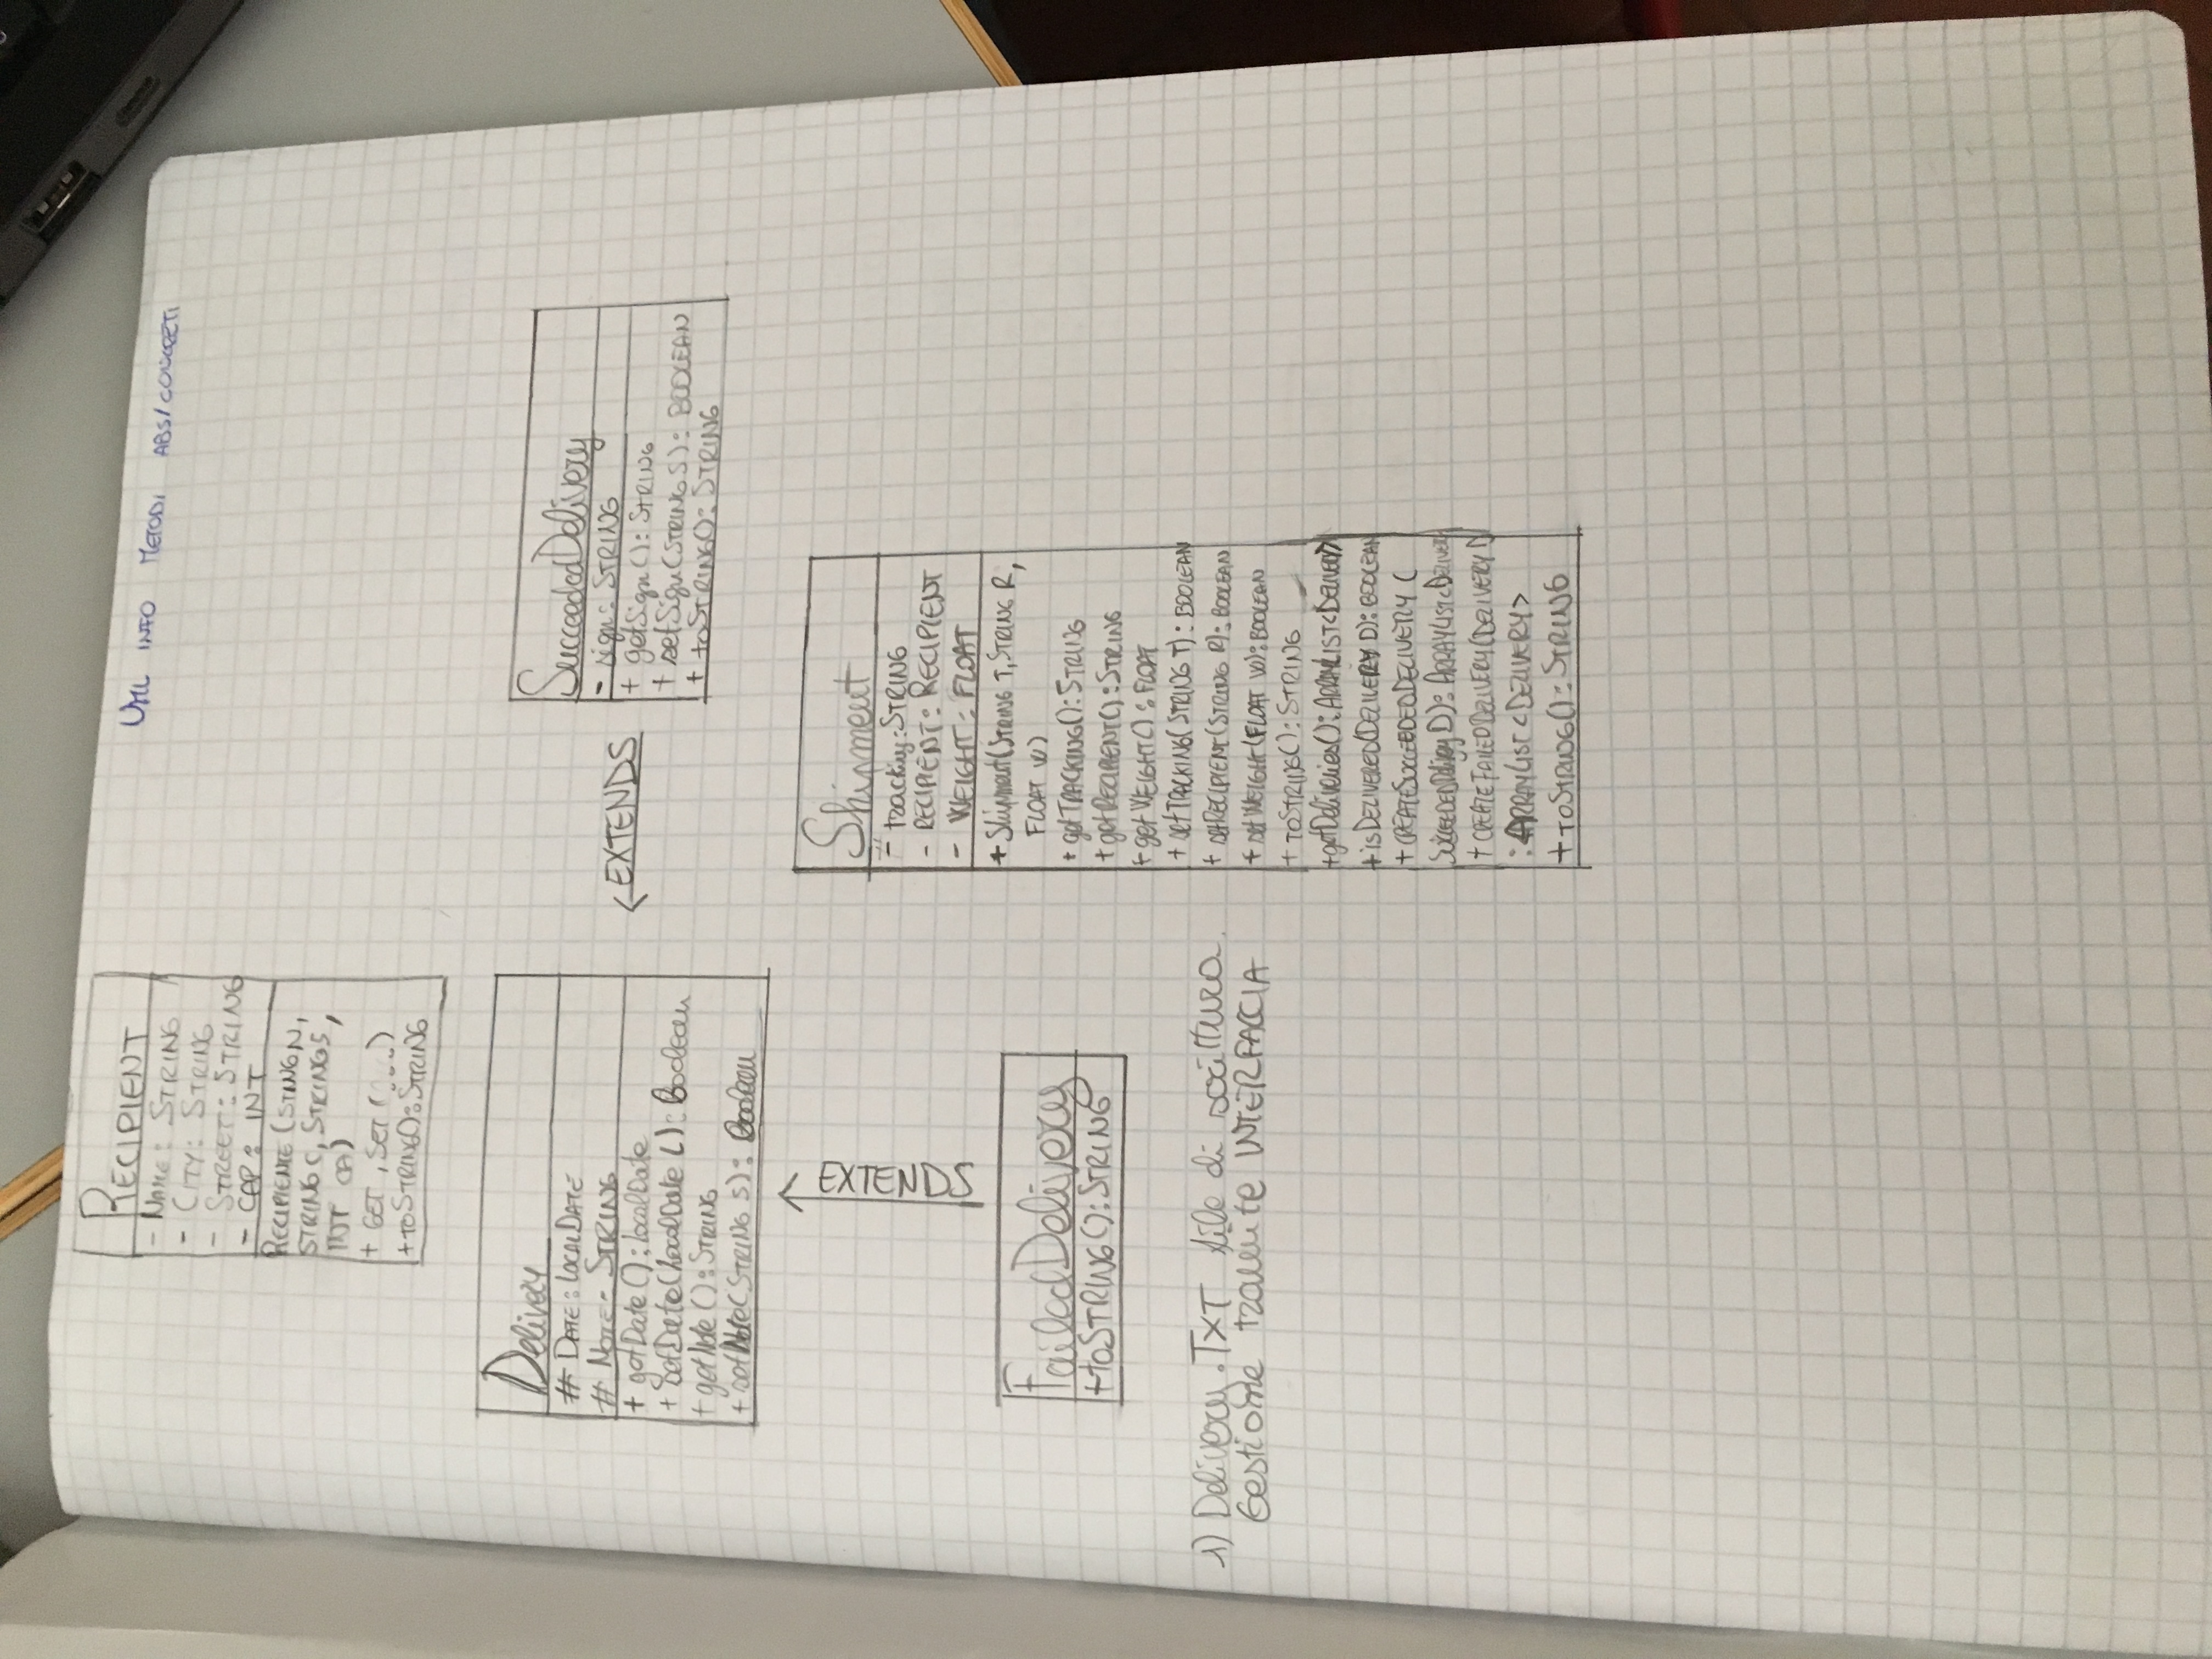 UML INFO METODI ABS/CONCRETI
RECIPIENT
- NAME: STRING
- CITY: STRING
- STREET: STRING
- CAP: INT
RECIPIENTE (STING N,
STRING C, STRING S,
INT CA)
+ GET, SET (...)
+ toSTRING(): STRING
Delivery
# DATE: LOCALDATE
# NOTE: STRING
+ getDate(): LocalDate
+ setDate(LocalDate L): Boolean
+ getNote(): STRING
+ setNote(STRING S): Boolean
← EXTENDS
SucceededDelivery
- sign: STRING
+ getSign(): STRING
+ setSign(STRING S): BOOLEAN
+ toSTRING(): STRING
← EXTENDS
FailedDelivery
+toSTRING(): STRING
1) Delivery.TXT file di scrittura.
Gestione tramite INTERFACCIA
Shipment
- tracking: STRING
- RECIPIENT: RECIPIENT
- WEIGHT: FLOAT
+ Shipment(STRING T, STRING R,
FLOAT W)
+ getTRACKING(): STRING
+ getRECIPIENT(): STRING
+ getWEIGHT(): FLOAT
+ setTRACKING(STRING T): BOOLEAN
+ setRECIPIENT(STRING R): BOOLEAN
+ setWEIGHT(FLOAT W): BOOLEAN
+ TOSTRING(): STRING
+getDeliveries(): ARRAYLIST<DELIVERY>
+isDELIVERED(DELIVERY D): BOOLEAN
+ CREATESUCCEEDEDDELIVERY (
SUCCEEDEDDelivery D): ARRAYLIST<DELIVERY
+ CREATEFAILEDDELIVERY(DELIVERY D
: ARRAYLIST<DELIVERY>
+ TOSTRING(): STRING